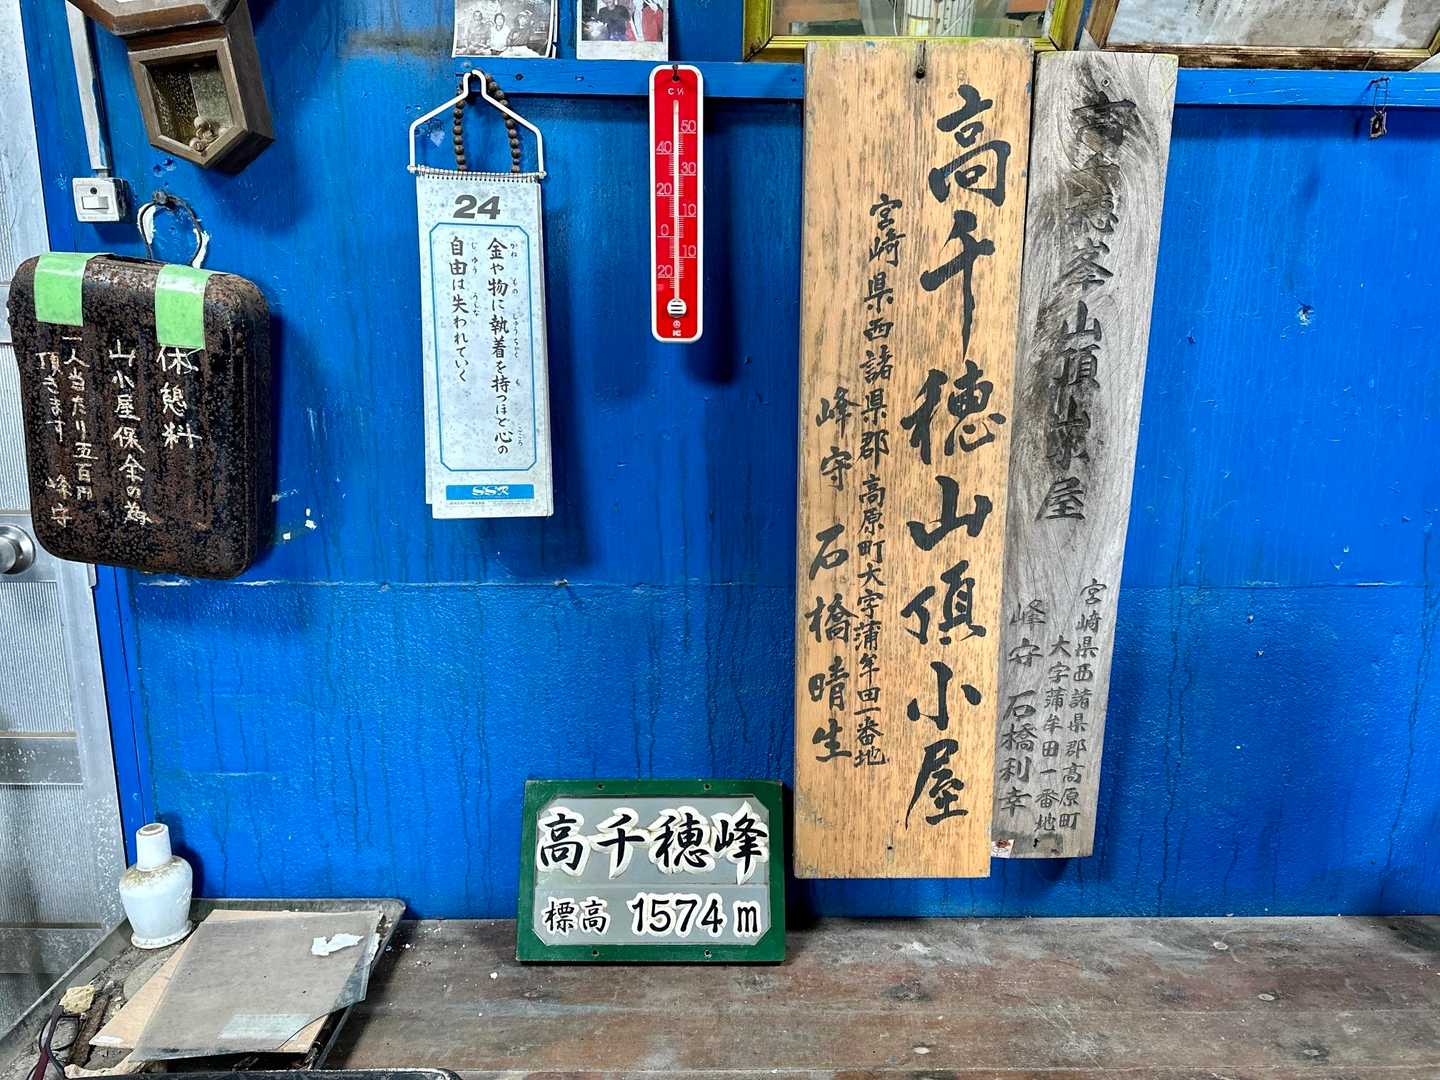 休憩料
山小屋保全の為
一人当たり五百円
頂きます 峰守
24
金や物に執着を持つほど心の
自由は失われていく
かね もの しゅうちゃく も こころ
じゆう うしな
SSK
C
50
40
30
20
10
0
10
20
高千穂山頂小屋
宮崎県西諸県郡高原町大字蒲牟田一番地
峰守 石橋晴生
高千穂峯山頂小屋
宮崎県西諸県郡高原町
大字蒲牟田一番地
峰守 石橋利幸
高千穂峰
標高 1574m